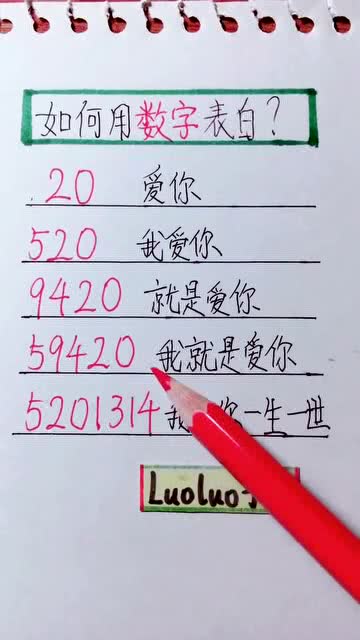 如何用数字表白？
20 爱你
520 我爱你
9420 就是爱你
59420 我就是爱你
5201314 我 你一生一世
Luoluo